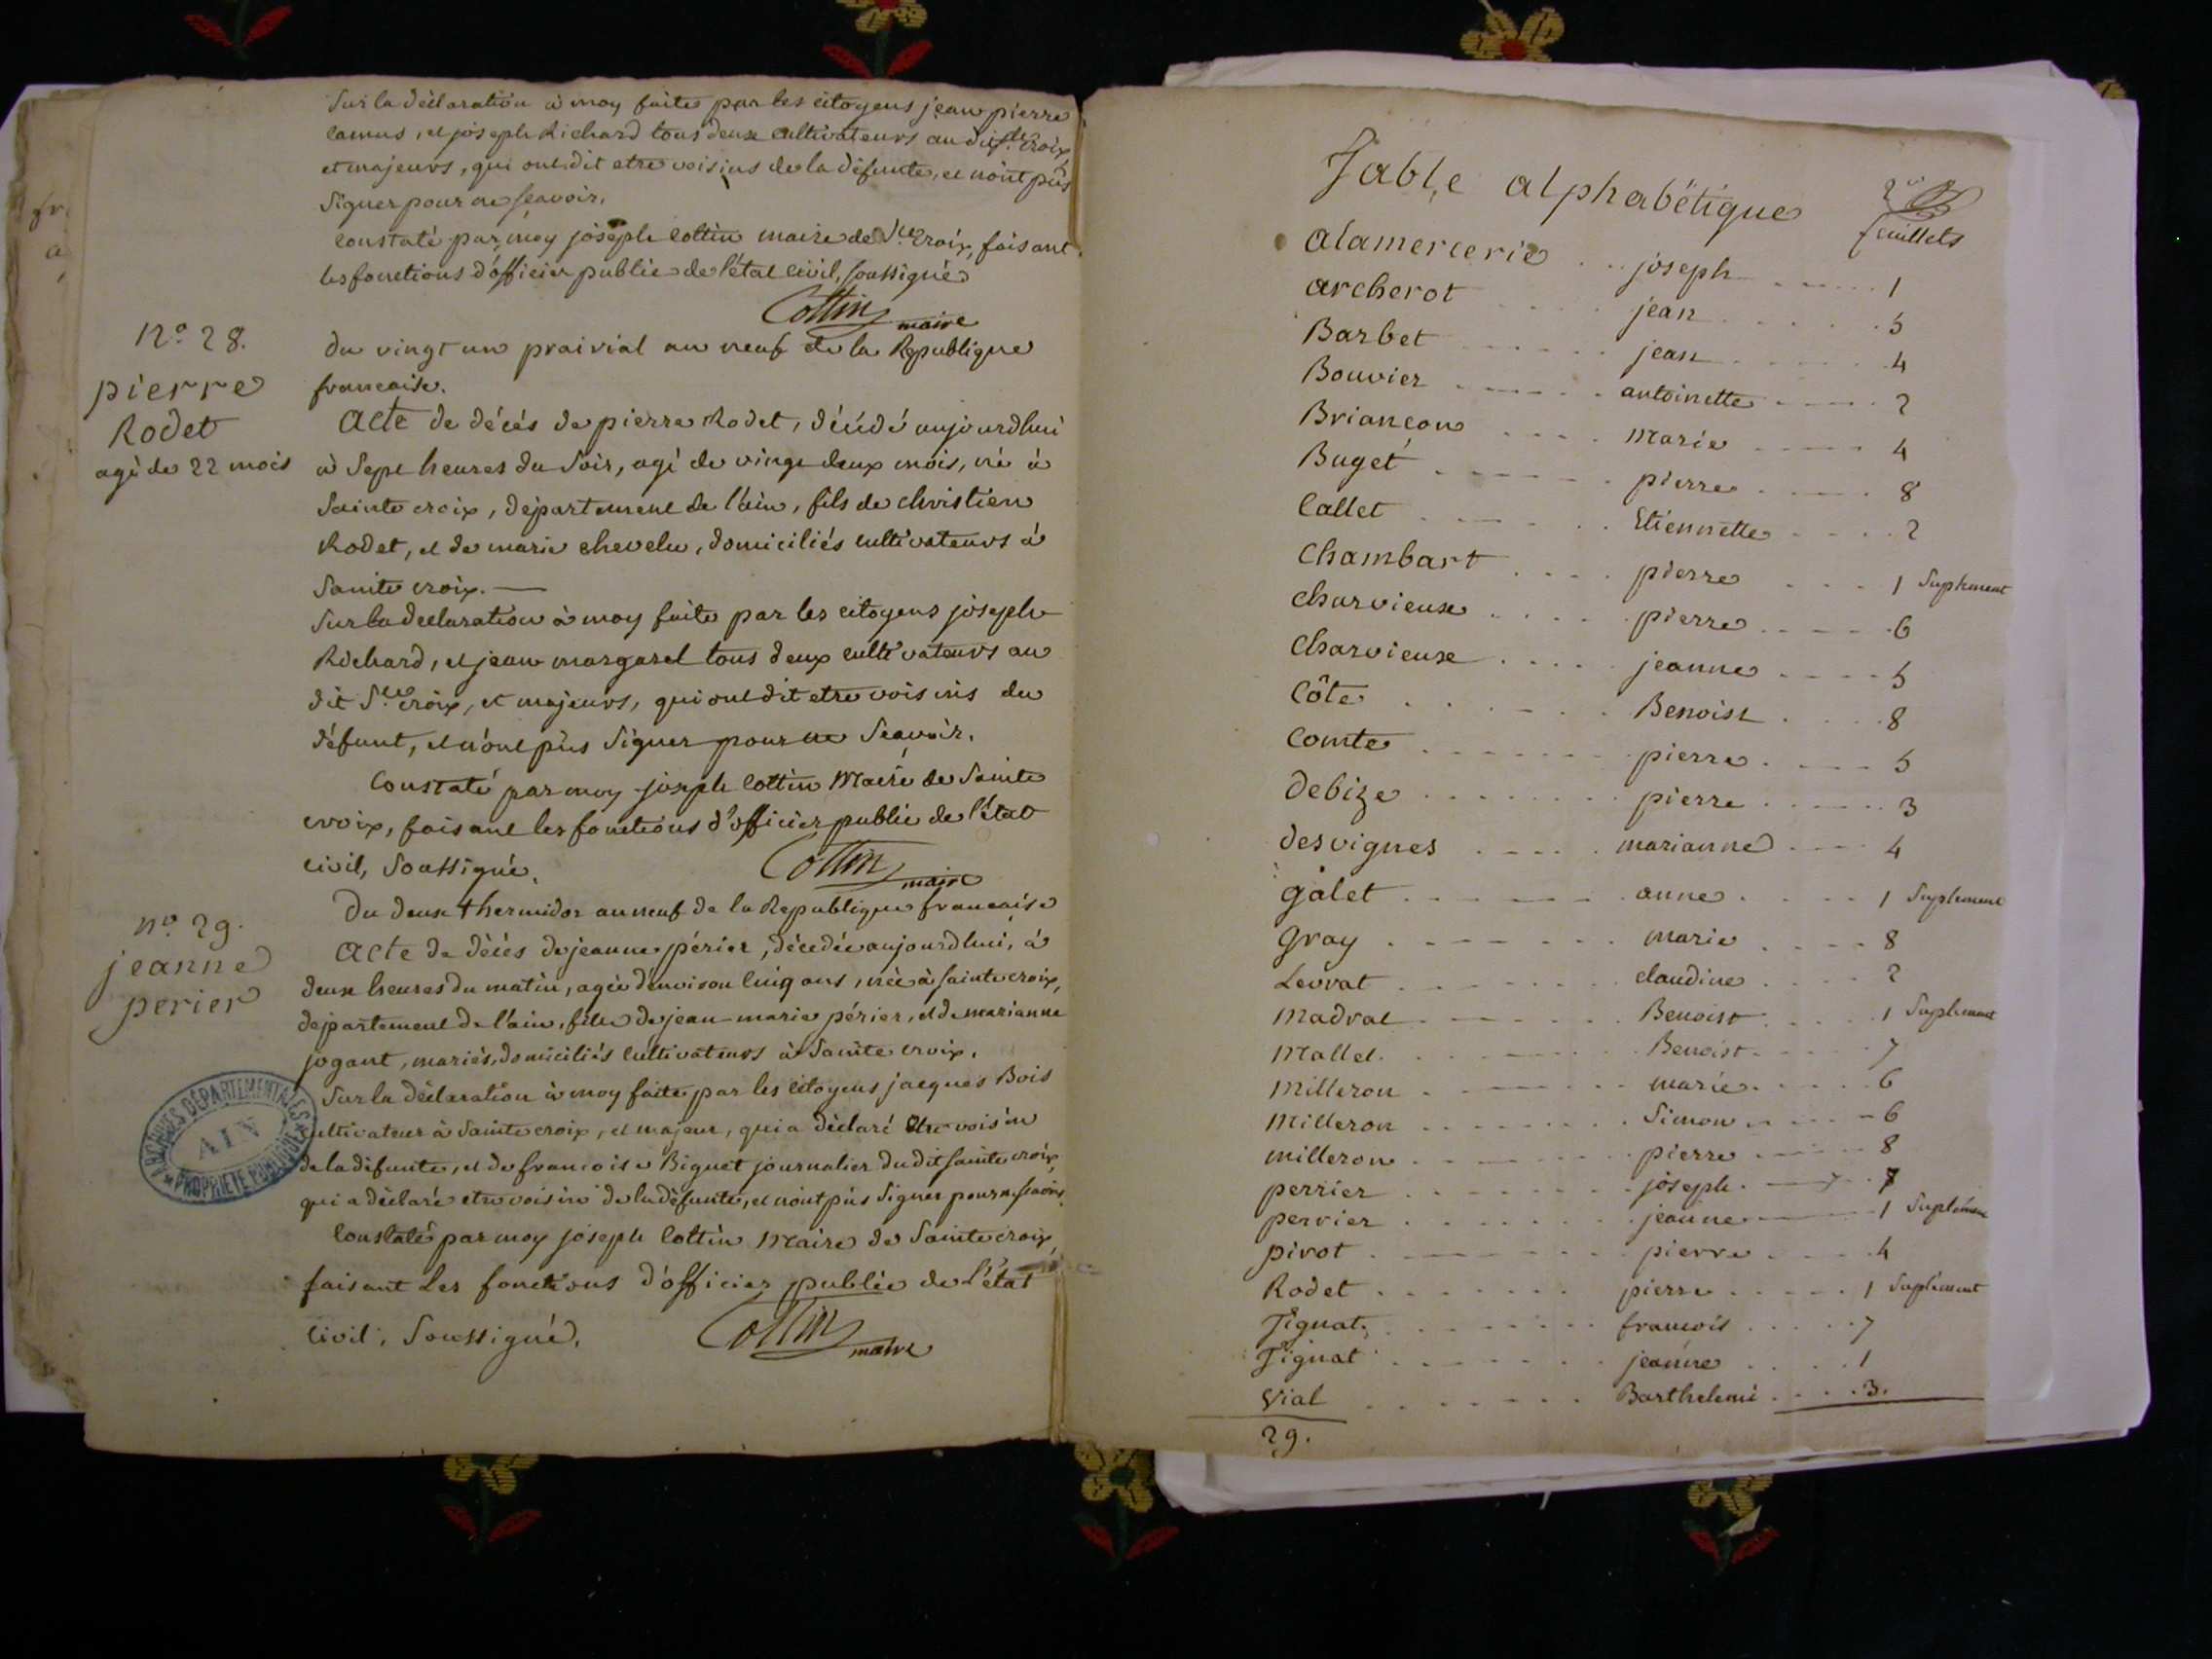 Sur la déclaration à moy faite par les citoyens jean pierre
camus, et joseph Richard tous deux cultivateurs au dit Ste croix
et majeurs, qui ont dit etre voisins de la défunte, et n'ont pûs
Signer pour ne sçavoir.
Constaté par moy joseph Cottin maire de Ste Croix, faisant
les fonctions d'officier public de l'état civil, soussigné
Cottin maire
n.o 28.
pierre
Rodet
agé de 22 mois
du vingt un prairial an neuf de la Republique
francaise.
Acte de décés de pierre Rodet, décédé aujourdhui
à Sept heures du Soir, agé de vingt deux mois, né à
Sainte croix, département de l'ain, fils de christien
Rodet, et de marie chevelu, domiciliés cultivateurs à
Sainte croix.
Sur la declaration à moy faite par les citoyens joseph
Richard, et jean margarel tous deux cultivateurs au
dit Ste croix, et majeurs, qui ont dit etre voisins du
défunt, et n'ont pûs Signer pour ne Sçavoir.
Constaté par moy joseph Cottin Maire de Sainte
croix, faisant les fonctions d'officier public de l'état
civil, Soussigné.
Cottin maire
n.o 29.
jeanne
perier
Du deux thermidor an neuf de la Republique francaise
Acte de décés de jeanne périer, décedée aujourdhui, à
deux heures du matin, agée d'environ cinq ans, née à sainte croix,
departement de l'ain, fille de jean-marie périer, et de marianne
jogant, mariés, domiciliés cultivateurs à Sainte croix.
Sur la déclaration à moy faite par les citoyens jacques Bois
cultivateur à Sainte croix, et majeur, qui a déclaré etre voisin
de la défunte, et de francoise Biguet journalier du dit sainte croix,
qui a déclaré etre voisin de la défunte, et n'ont pûs Signer pour ne sçavoir
Constaté par moy joseph Cottin Maire de Sainte croix,
faisant Les fonctions d'officier public de l'état
civil, Soussigné.
Cottin maire
ARCHIVES DÉPARTEMENTALES
AIN
PROPRIÉTÉ PUBLIQUE
Table alphabétique
feuillets
alamercerie joseph 1
archerot jean 5
Barbet jean 4
Bouvier antoinette 2
Briancon Marie 4
Buget pierre 8
Callet Etiennette 2
Chambart pierre 1 Suplement
charvieuse pierre 6
Charvieuse jeanne 5
Côte Benoist 8
Comte pierre 5
Debize pierre 3
desvignes marianne 4
galet anne 1 Suplement
gray marie 8
Levrat claudine 2
Madval Benoist 1 Suplement
Mallet Benoist 7
Milleron marie 6
Milleron Simon 6
milleron pierre 8
perrier joseph 7
perrier jeanne 1 Suplément
pivot pierre 4
Rodet pierre 1 Suplément
Tignat francois 7
Tignat jeanne 1
Vial Barthelemi 3.
29.